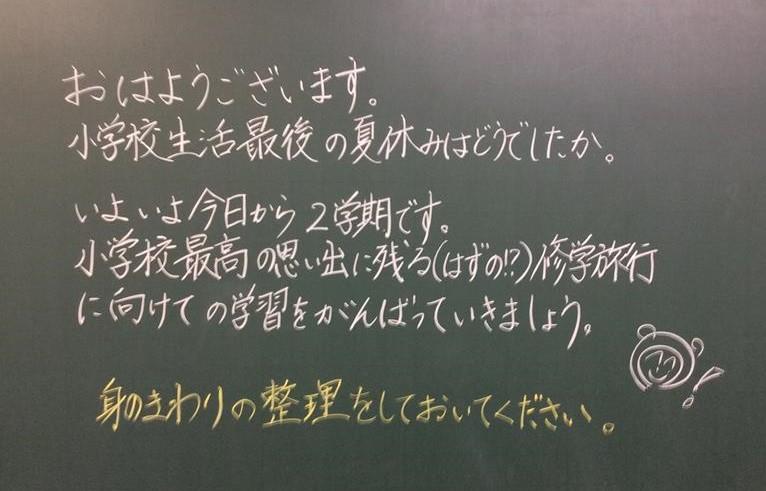 おはようございます。
小学校生活最後の夏休みはどうでしたか。
いよいよ今日から2学期です。
小学校最高の思い出に残る(はずの!?)修学旅行
に向けての学習をがんばっていきましょう。
身のまわりの整理をしておいてください。